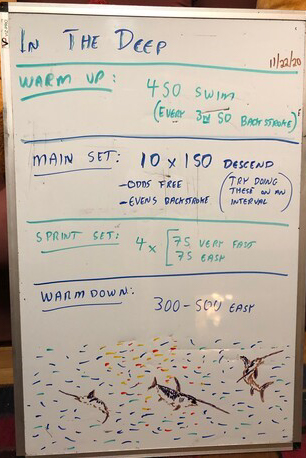 In The Deep
11/22/20
WARM UP:
450 SWIM
(EVERY 3rd 50 BACKSTROKE)
MAIN SET: 10 x 150 DESCEND
-ODDS FREE
-EVENS BACKSTROKE
(TRY DOING
THESE ON AN
INTERVAL)
SPRINT SET:
4 x [75 VERY FAST
75 EASY
WARM DOWN:
300-500 EASY